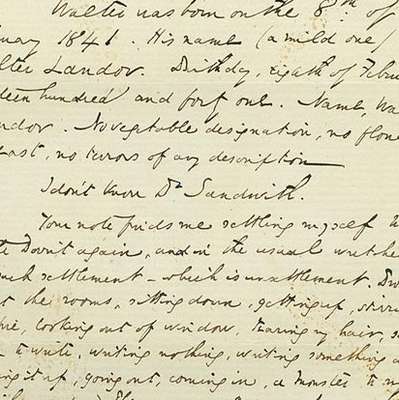 Walter was born on the 8th of
ruary 1841. His name (a mild one)
lter Landor. Birthday, eighth of Febru
teen hundred and forty one. Name, Wa
andor. No vegetable designation, no flowe
east, no terrors of any description
I don't know Dr Sandwith.
Your note finds me settling myself to
tle Dorrit again, and in the usual wretche
such settlement - which is unsettlement.
the rooms, sitting down, getting up, stirring
fire, looking out of window, tearing my hair, s
to write, writing nothing, writing something a
ing it up, going out, coming in, a Monster to my